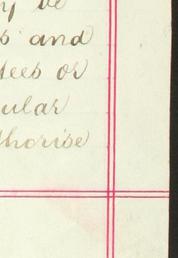 y be
s and
tees or
ular
thorise